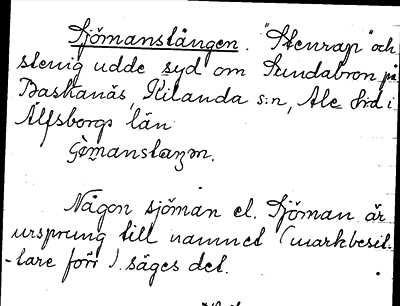 Sjömanstången. "Stenrap" och
stenig udde syd om Sundabron på
Baskanäs, Kilanda s:n, Ale hrd i
Älfsborgs län
Någon sjöman el. Sjöman är
ursprung till namnet (markbesit-
-tare förr). säges det.